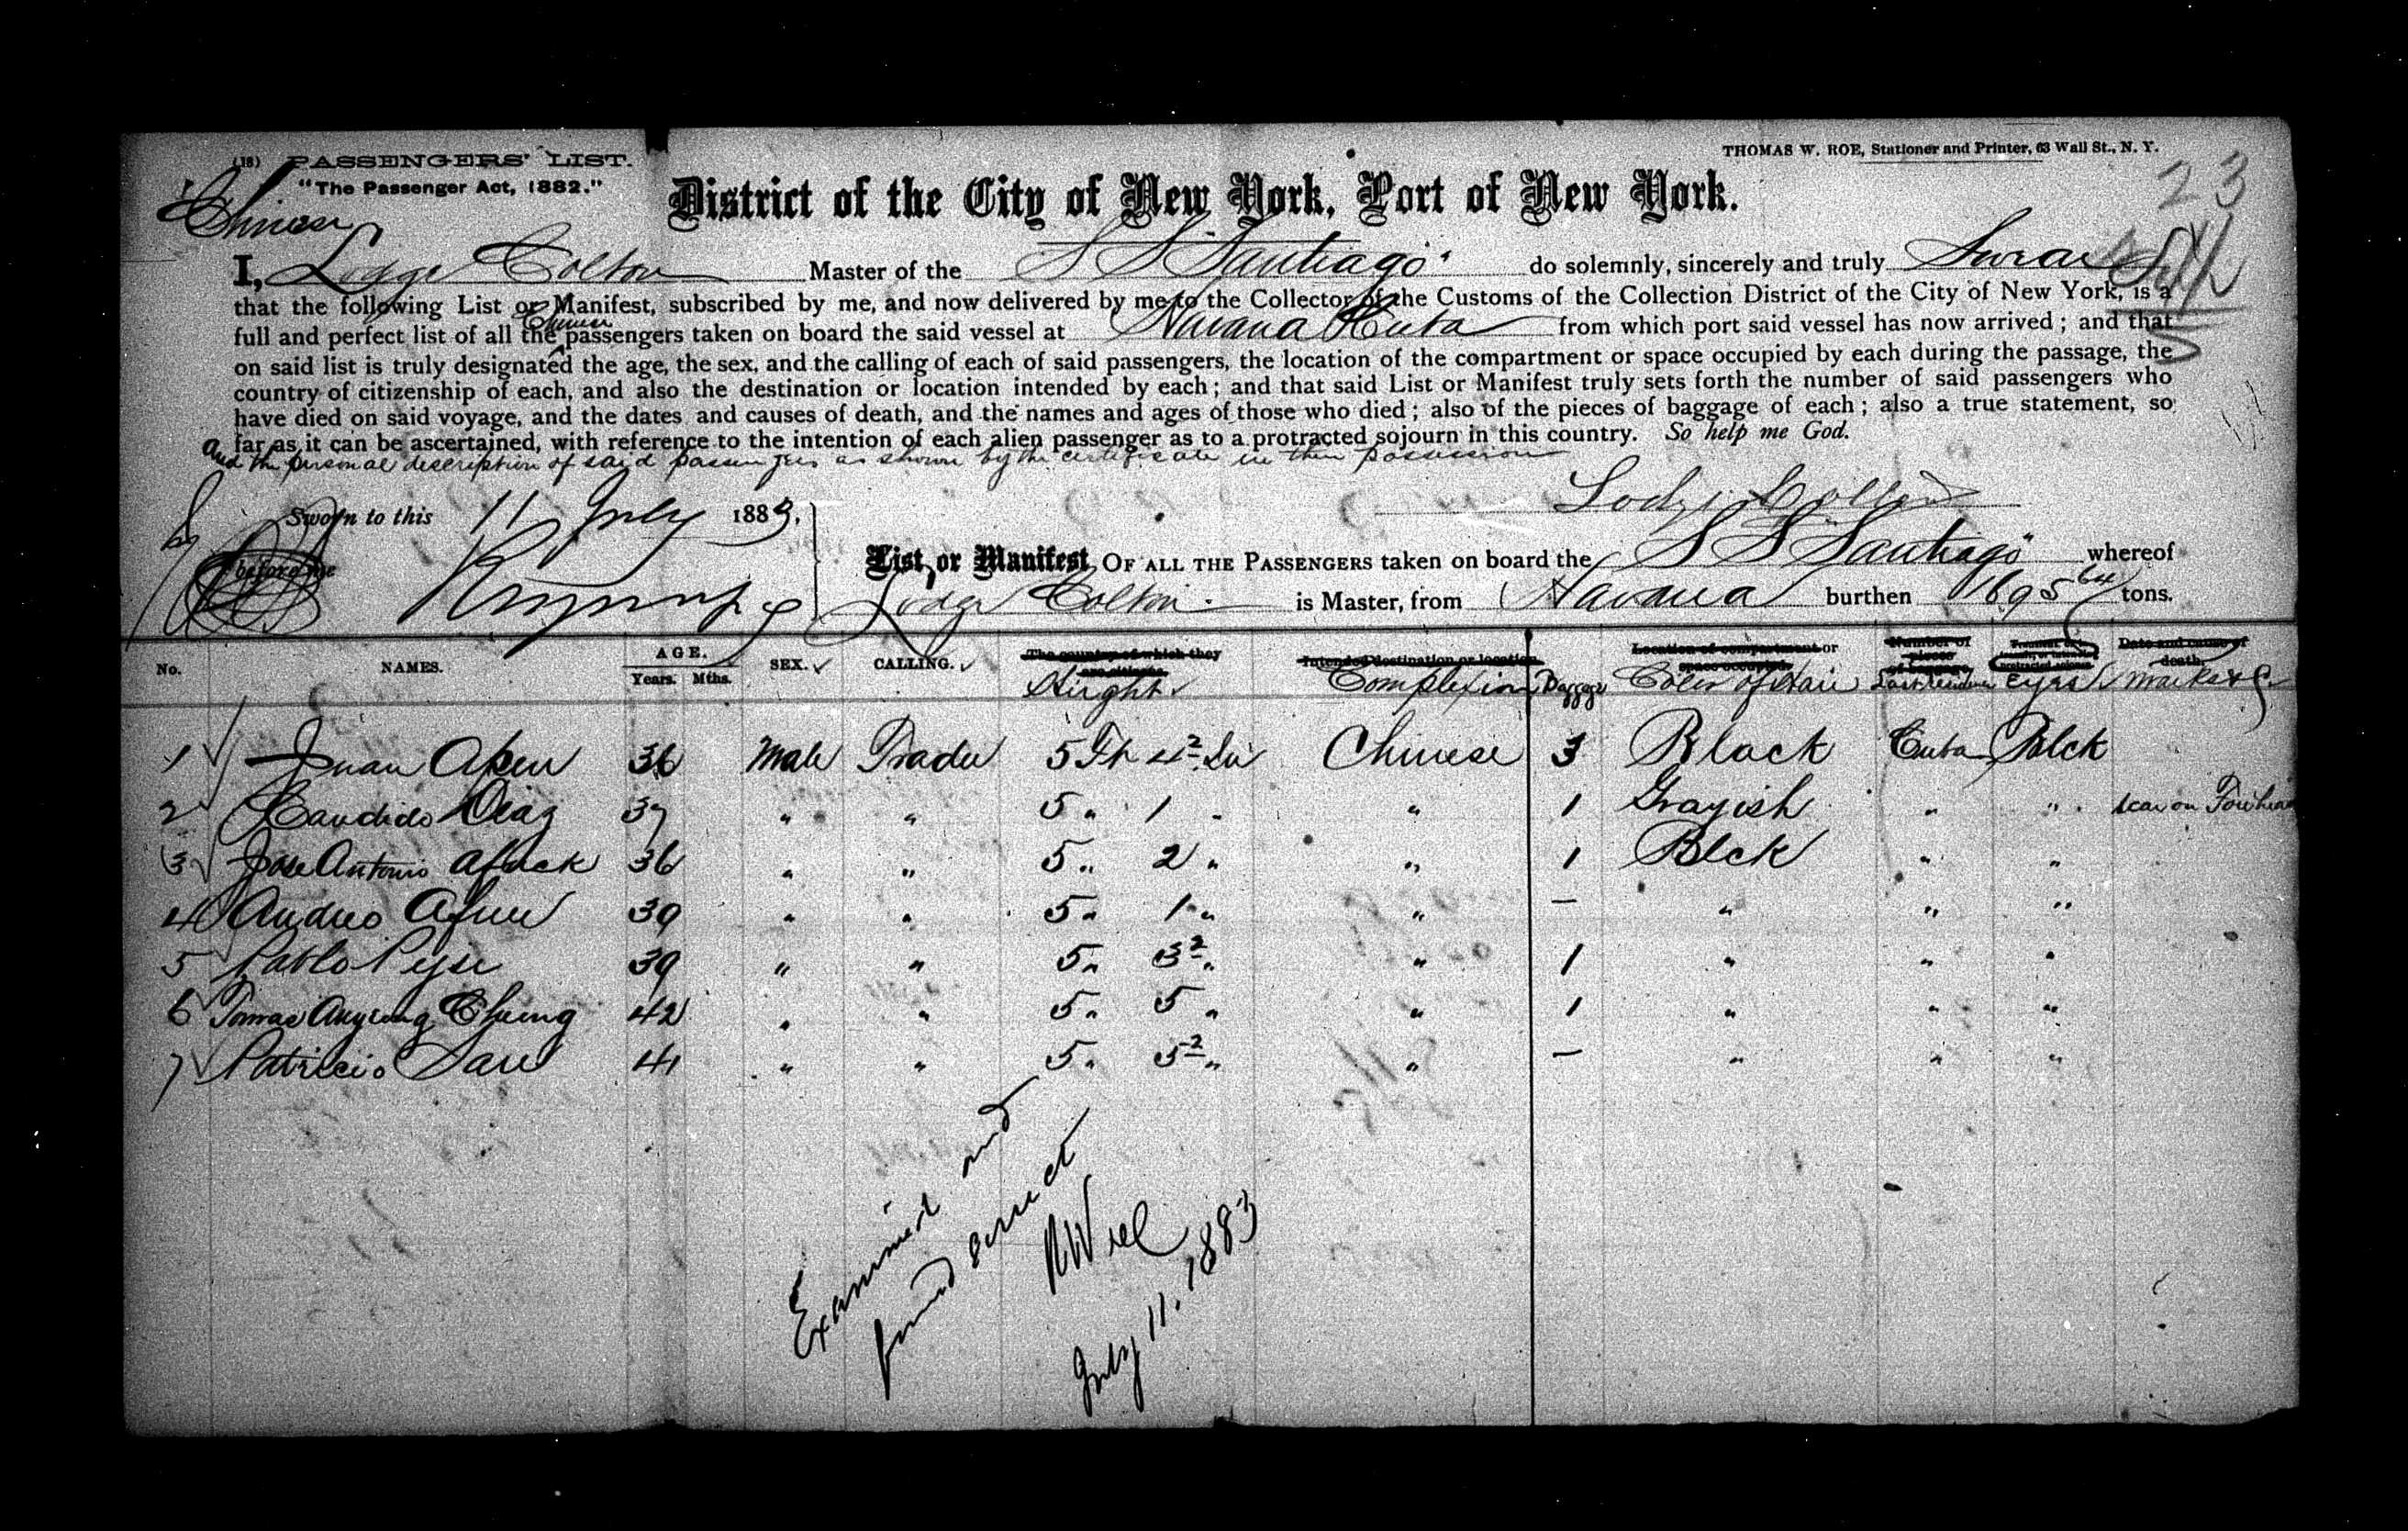 (18) PASSENGERS' LIST.
THOMAS W. ROE, Stationer and Printer, 63 Wall St., N. Y.
"The Passenger Act, 1882."
23
Chinese
District of the City of New York, Port of New York.
I, Lodge Colton Master of the S S "Santiago" do solemnly, sincerely and truly Swear
that the following List or Manifest, subscribed by me, and now delivered by me to the Collector of the Customs of the Collection District of the City of New York, is a
full and perfect list of all the Chinese passengers taken on board the said vessel at Havana Cuba from which port said vessel has now arrived; and that
on said list is truly designated the age, the sex, and the calling of each of said passengers, the location of the compartment or space occupied by each during the passage, the
country of citizenship of each, and also the destination or location intended by each; and that said List or Manifest truly sets forth the number of said passengers who
have died on said voyage, and the dates and causes of death, and the names and ages of those who died; also of the pieces of baggage of each; also a true statement, so
far as it can be ascertained, with reference to the intention of each alien passenger as to a protracted sojourn in this country. So help me God.
and the personal description of said passengers as shown by the certificate in their possession
Lodge Colton
Sworn to this 11 July 1883,
before me
List or Manifest OF ALL THE PASSENGERS taken on board the S S Santiago whereof
Lodge Colton is Master, from Havana burthen 1695 64/ tons.
No. NAMES. AGE. Years. Mths. SEX. CALLING. The country of which they are citizens Height Intended destination or location Complexion Baggage Location of compartment or space occupied. Color of Hair Number of pieces of baggage Last Residence Eyes Date and cause of death. Marks &c
1 Juan Aken 36 Male Trader 5 Ft 4 2 In Chinese 3 Black Cuba Blck
2 Candido Diaz 37 " " 5 " 1 " " 1 Grayish " " Scar on Forehead
3 Jose Antonio Afuck 36 " " 5 " 2 " " 1 Blck " "
4 Andres 39 " " 5 " 1 " " — " " "
5 Pablo 39 " " 5 " 3 2 " " 1 " " "
6 Tomas Chung 42 " " 5 " 5 " " 1 " " "
7 Patricio 41 " " 5 " 5 2 " " — " " "
Examined and
found correct
July 11. 1883